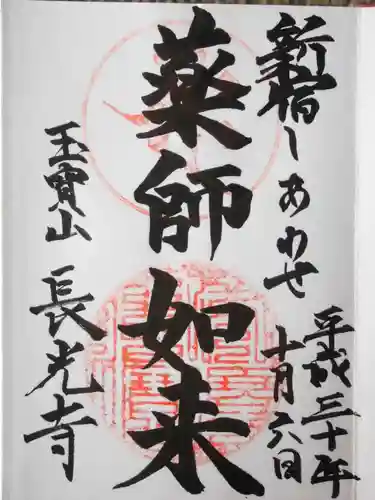 新宿しあわせ
平成三十年
十月六日
薬師如来
玉寶山
長光寺